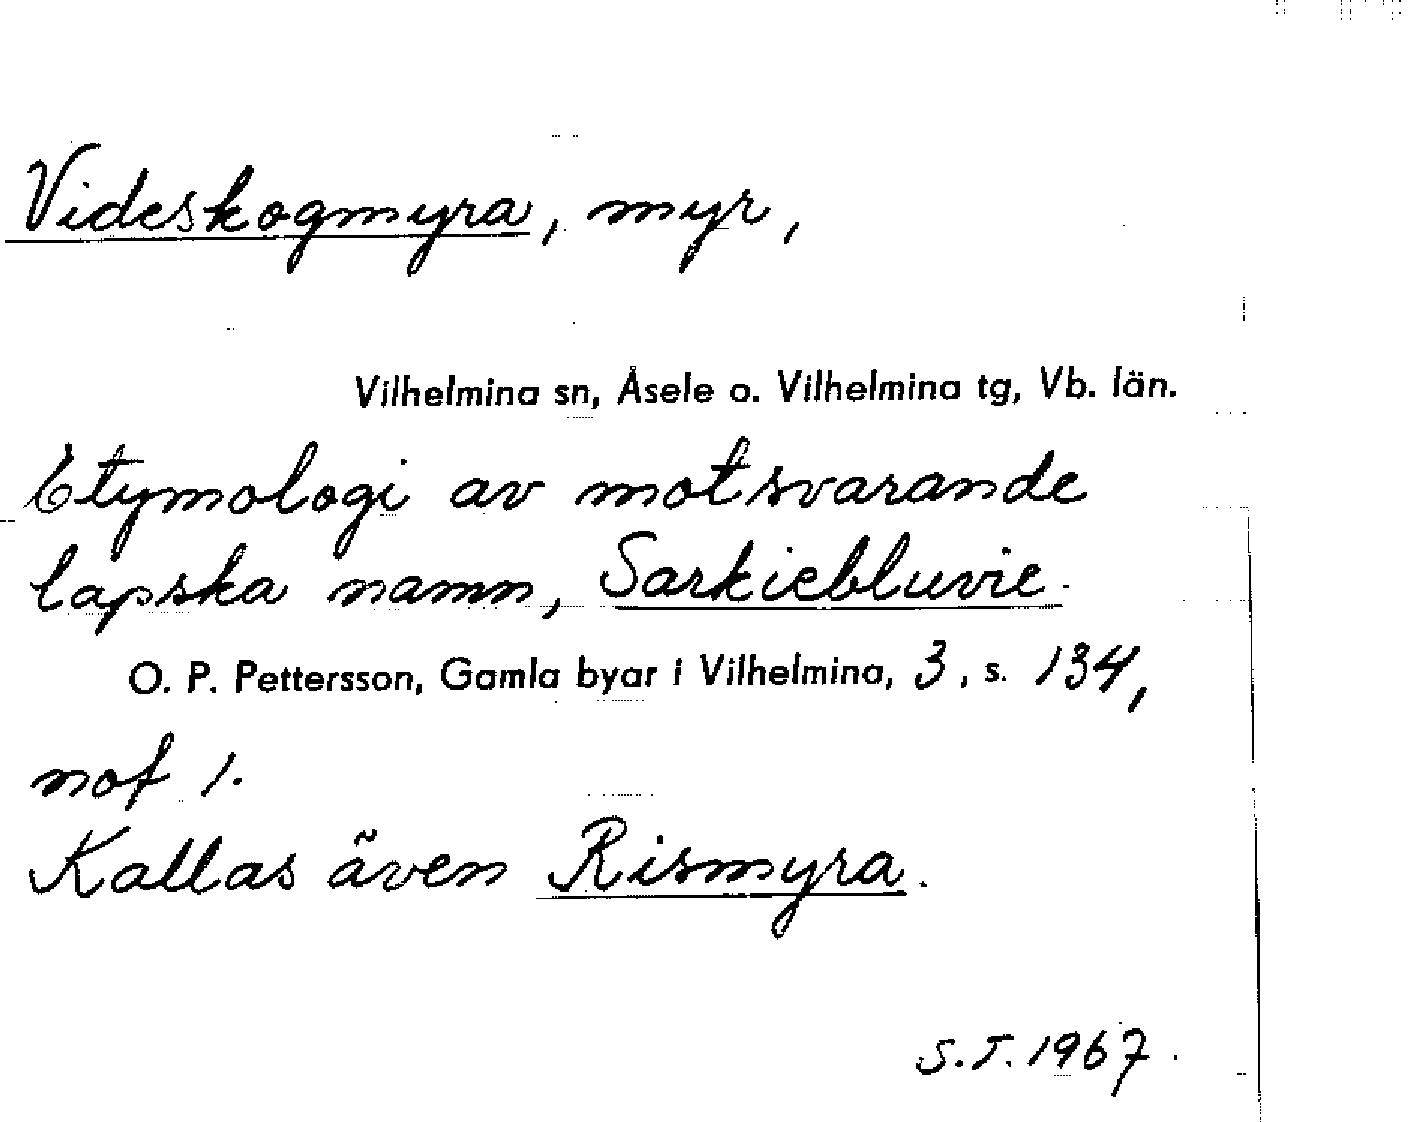 Videskogmyra, myr,
Vilhelmina sn, Åsele o. Vilhelmina tg, Vb. län.
Etymologi av motsvarande
lapska namn, Sarkiebluvie.
O. P. Pettersson, Gamla byar i Vilhelmina, 3, s. 134,
not 1.
Kallas även Rismyra.
S.T. 1967.